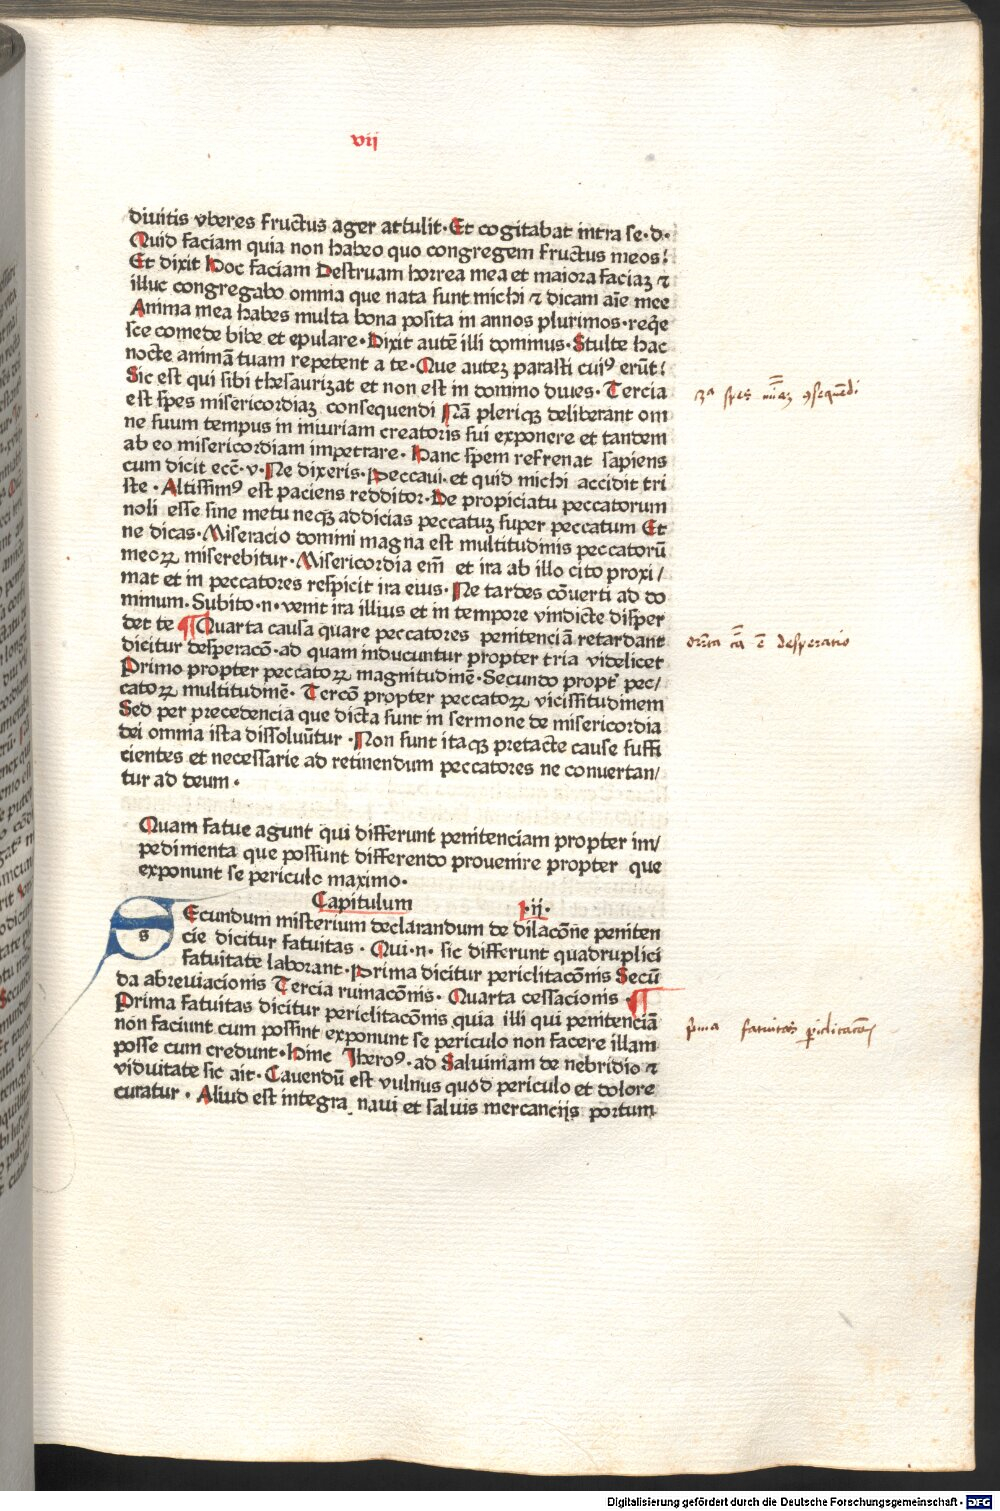 vij
diuitis vberes fructus ager attulit·Et cogitabat intra se·d·
Quid faciam quia non habeo quo congregem fructus meos!
Et dixit Hoc faciam Destruam horrea mea et maiora faciaꝫ ⁊
illuc congregabo omnia que nata sunt michi ⁊ dicam aīe mee
Anima mea habes multa bona posita in annos plurimos·reqͥe
sce comede bibe et epulare·Dixit autē illi dominus·Stulte hac
nocte animā tuam repetent a te·Que auteꝫ parasti cuiꝰ erūt!
Sic est qui sibi thesaurizat et non est in domino diues· Tercia
est spes misericordiaꝫ consequendi Nā pleriqꝫ deliberant om
ne suum tempus in iniuriam creatoris sui exponere et tandem
ab eo misericordiam impetrare·Hanc spem refrenat sapiens
cum dicit ecc̄·v·Ne dixeris·Peccaui·et quid michi accidit tri
ste·Altissimꝰ est paciens redditor·De propiciatu peccatorum
noli esse sine metu neqꝫ addicias peccatuꝫ super peccatum Et
ne dicas·Miseracio domini magna est multitudinis peccatorū
meoꝝ miserebitur·Misericordia em̄ et ira ab illo cito proxi/
mat et in peccatores respicit ira eius·Ne tardes cōuerti ad do
minum·Subito·n·venit ira illius et in tempore vindicte disper
det te ¶Quarta causa quare peccatores penitenciā retardant
dicitur desperacō·ad quam inducuntur propter tria videlicet
Primo propter peccatoꝝ magnitudinē·Secundo propt̕ pec/
catoꝝ multitudinē· Tercō propter peccatoꝝ vicissitudinem
Sed per precedencia que dicta sunt in sermone de misericordia
dei omnia ista dissoluūtur·Non sunt itaqꝫ pretacte cause suffi
cientes et necessarie ad retinendum peccatores ne conuertan/
tur ad deum·
Quam fatue agunt qui differunt penitenciam propter im/
pedimenta que possunt differendo prouenire propter que
exponunt se periculo maximo·
Capitulum ·ij·
sEcundum misterium declarandum de dilacōne peniten
cie dicitur fatuitas·Qui·n· sic differunt quadruplici
fatuitate laborant·Prima dicitur periclitacōnis Secū
da abreuiacionis Tercia ruinacōnis· Quarta cessacionis·¶
Prima fatuitas dicitur periclitacōnis quia illi qui penitenciā
non faciunt cum possint exponunt se periculo non facere illam
posse cum credunt·Hinc Iheroꝰ·ad Saluiniam de nebridio ⁊
viduitate sic ait·Cauendū est vulnus quod periculo et dolore
curatur·Aliud est integra naui et saluis mercancijs portum
3ᵃ spes mīaꝫ ꝯsequēdi
cā ē desperatio
pͥma fatuitas ꝑiclitacōis
Digitalisierung gefördert durch die Deutsche Forschungsgemeinschaft - DFG